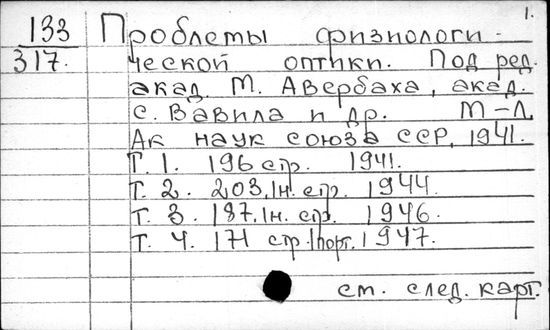 1.
133 Проблемы физиологи-
317. ческой оптики. Под ред.
акад. М. Авербаха, акад.
С. Вавила и др. М-Л,
Ак наук союза ССР, 1941.
Т. 1. 196 стр. 1941.
Т. 2. 203, 1н. стр. 1944.
Т. 3. 187, 1н. стр. 1946.
Т. 4. 171 стр. 1порт. 1947.
см. след. карт.